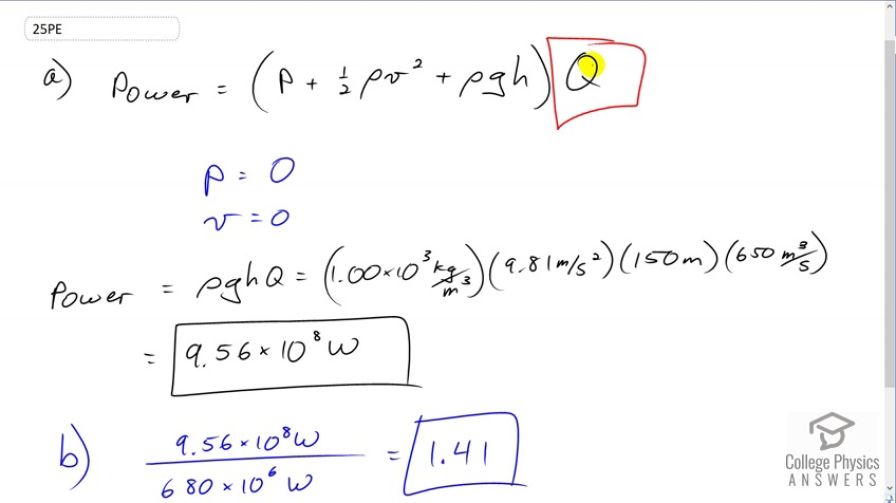 25PE
a) Power = (P + ½ρv² + ρgh) Q
P = 0
v = 0
Power = ρghQ = (1.00×10³ kg/m³)(9.81m/s²)(150m)(650 m³/s)
= 9.56×10⁸ W
b) 9.56×10⁸W / 680×10⁶ W = 1.41
College Physics
ANSWERS